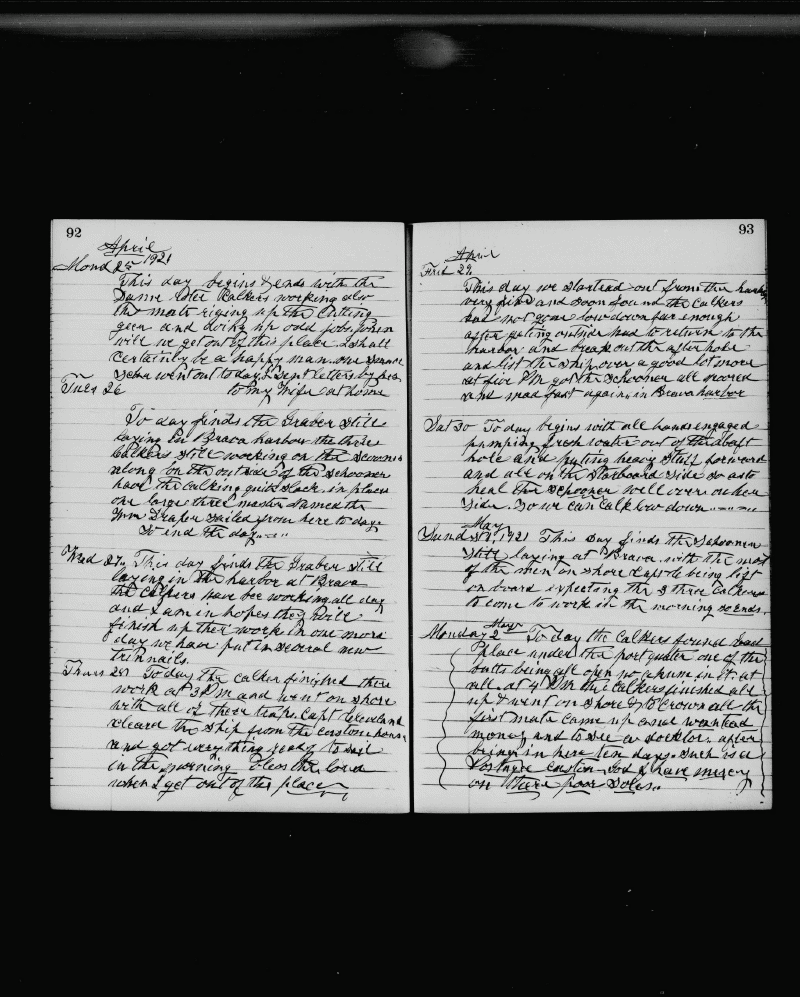 92
April
Mond 25 1921
This day begins & ends with the
same old Calkers working also
the mate riging up the cuting
geer and doing up odd jobs when
will we get out of this place I shall
certainly be a happy man one
Schr went out to day. I sent letters by her
Tues 26 to my Wife at home
To day finds the Graber still
laying in Brava harbor the three
Calkers still working on the seams
along on the outside of the schooner
have the calking quite slack in places
one large three master named the
Wm Draper sailed from here to day
So end the day
Wed 27 This day finds the Graber still
laying in the harbor at Brava
the calkers have bee working all day
and I am in hopes they will
finish up ther work in one more
day we have put in several new
trinnails.
Thurs 28 To day the calker finished there
work at 3 PM and went on shore
with all of there traps. Capt Cleveland
cleard the ship from the custom house
and got everything ready to sail
in the morning bless the lord
when I get out of this place
93
April
Frid 29
This day we started out from the harbor
very fine and soon found the Calkers
had not gone low down far enough
after geting outside had to return to the
harbor and break out the after hole
and list the ship over a good lot more
at five PM got the schooner all moored
and mad fast again in Brava harbor
Sat 30 To day begins with all hands engaged
pumping fresh water out of the aft
hole and puting heavy stuff forward
and all on the Starboard side so as to
heal the Schooner well over on her
side. So we can calk low down
May
Sund 1st, 1921 This day finds the Schooner
still laying at Brava with the most
of the men on shore Capt C being left
on board expecting the 3 three Calkers
to come to work in the morning so ends.
May
Monday 2 To day the calkers found bad
place under the port quater one of the
butts being all open no in it at
all. at 4 PM the calkers finished all
up & went on shore to Crown all the
first mate came up and wanted
money and to see a docktor after
being in here ten days. Such is a
custom God have mercy
on there poor Soles.